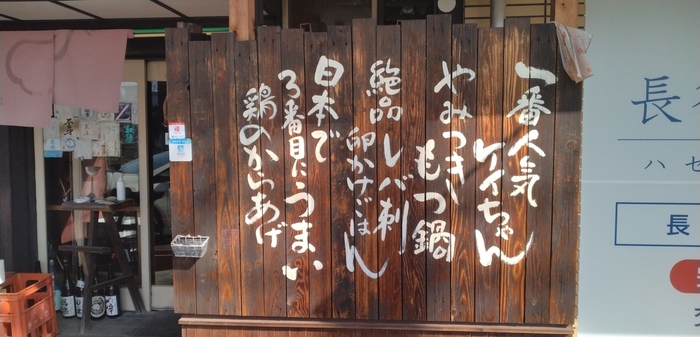 一番人気
ケイちゃん
やみつき!
もつ鍋
絶品レバ刺
卵かけごはん
日本で
3番目にうまい
鶏のからあげ
長
ハセ
長